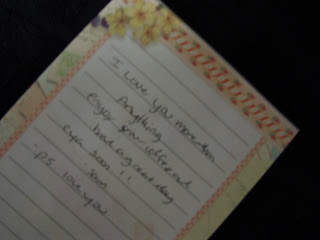 I Love you more than
Anything
enjoy your
have a great day
soon !!
PS love you